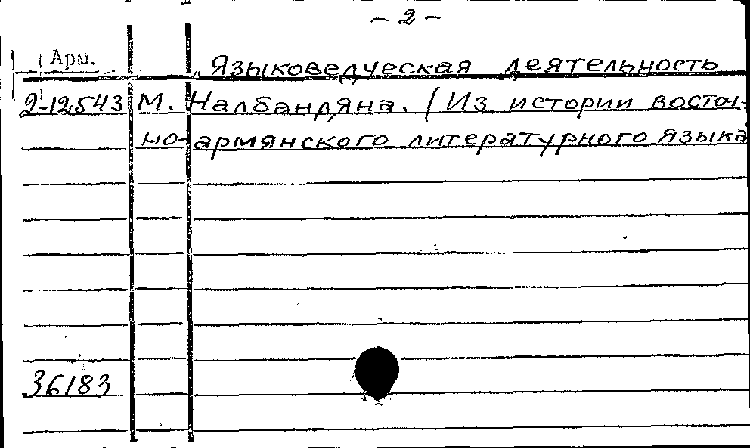 - 2 -
Арм. Языковедческая деятельность
2-12543 М. Налбандяна. (Из истории восточ-
но-армянского литературного языка
36183